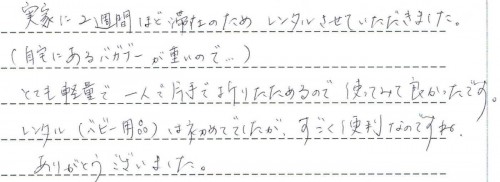 実家に2週間ほど滞在のため レンタルさせていただきました。
(自宅にあるバガブーが重いので…)
とても軽量で 一人で片手で折りたためるので 使ってみて良かったです。
レンタル (ベビー用品) は初めてでしたが、すごく便利なのですね。
ありがとうございました。